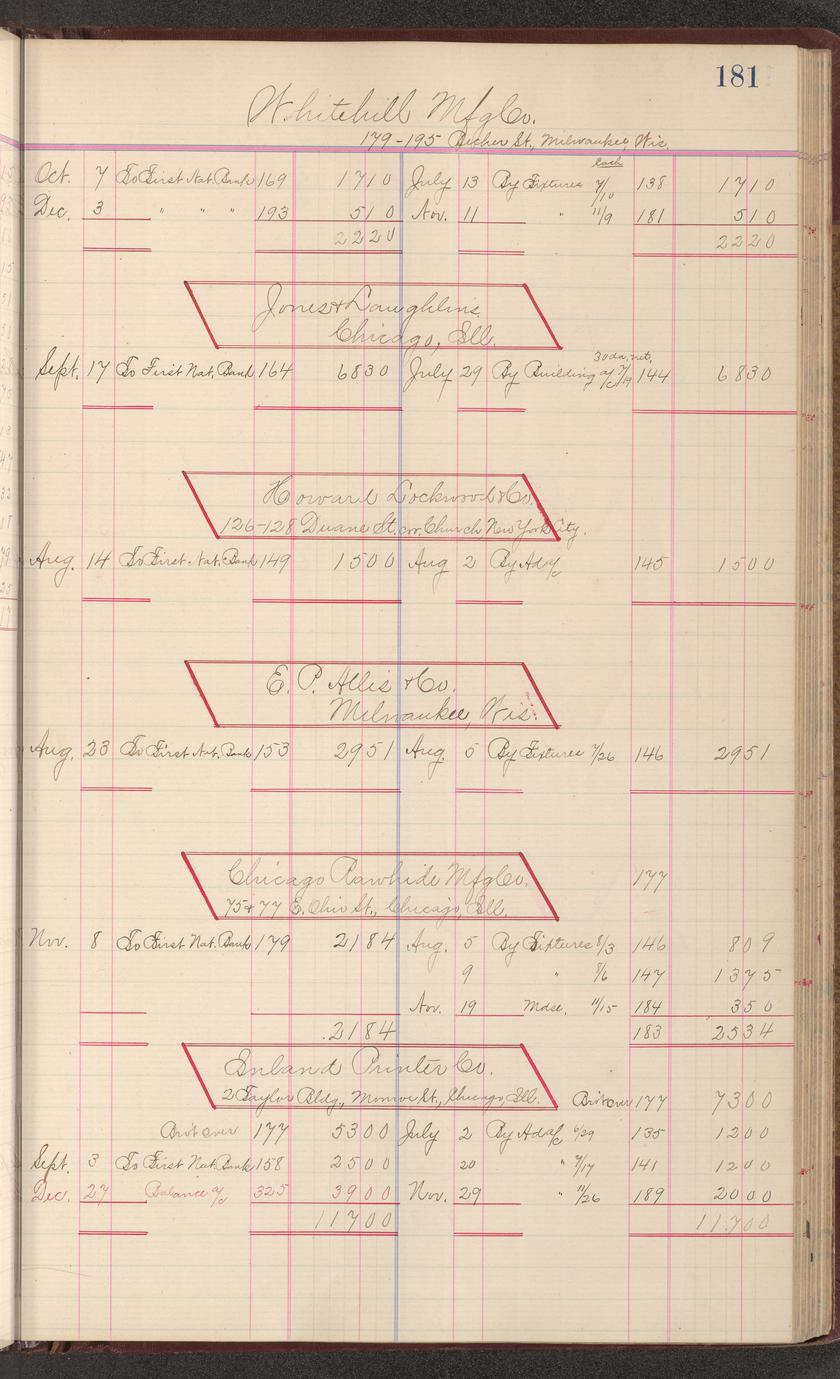 181
Whitehill Mfg Co.
179-195 Becher St., Milwaukee, Wis.
Cash
Oct. 7 To First Nat. Bank 169 1710 July 13 By Fixtures 7/10 138 1710
Dec. 3 " " " 193 510 Nov. 11 " 11/9 181 510
2220 2220
Jones & Laughlins
Chicago, Ill.
30 da. net.
Sept. 17 To First Nat. Bank 164 6830 July 29 By Building a/c 7/19 144 6830
Howard Lockwood & Co.
126-128 Duane St. cor. Church New York City.
Aug. 14 To First Nat. Bank 149 1500 Aug 2 By Ad a/c 145 1500
E. P. Allis & Co.
Milwaukee, Wis.
Aug. 23 To First Nat. Bank 153 2951 Aug. 5 By Fixtures 7/26 146 2951
Chicago Rawhide Mfg Co. 177
75 & 77 E. Ohio St., Chicago, Ill.
Nov. 8 To First Nat. Bank 179 2184 Aug. 5 By Fixtures 8/3 146 809
9 " 8/6 147 1375
Nov. 19 Mdse. 11/15 184 350
2184 183 2534
Inland Printer Co.
2 Taylor Bldg., Monroe St., Chicago, Ill. Bro't over 177 7300
Bro't over 177 5300 July 2 By Ad a/c 6/29 135 1200
Sept. 3 To First Nat. Bank 158 2500 20 " 7/17 141 1200
Dec. 27 Balance a/c 325 3900 Nov. 29 " 11/26 189 2000
11700 11700